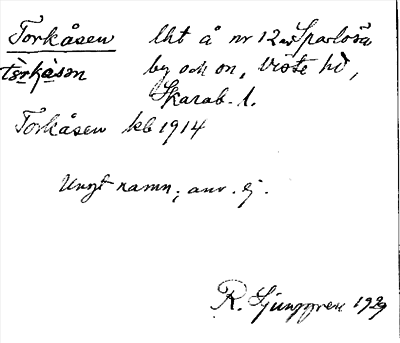 Torkåsen lht å nr 12 av Sparlösa
tŏrkåsən by och sn, Viste hd,
Skarab. l.
Torkåsen kb 1914
Ungt namn; anv. ej.
R. Ljunggren 1929